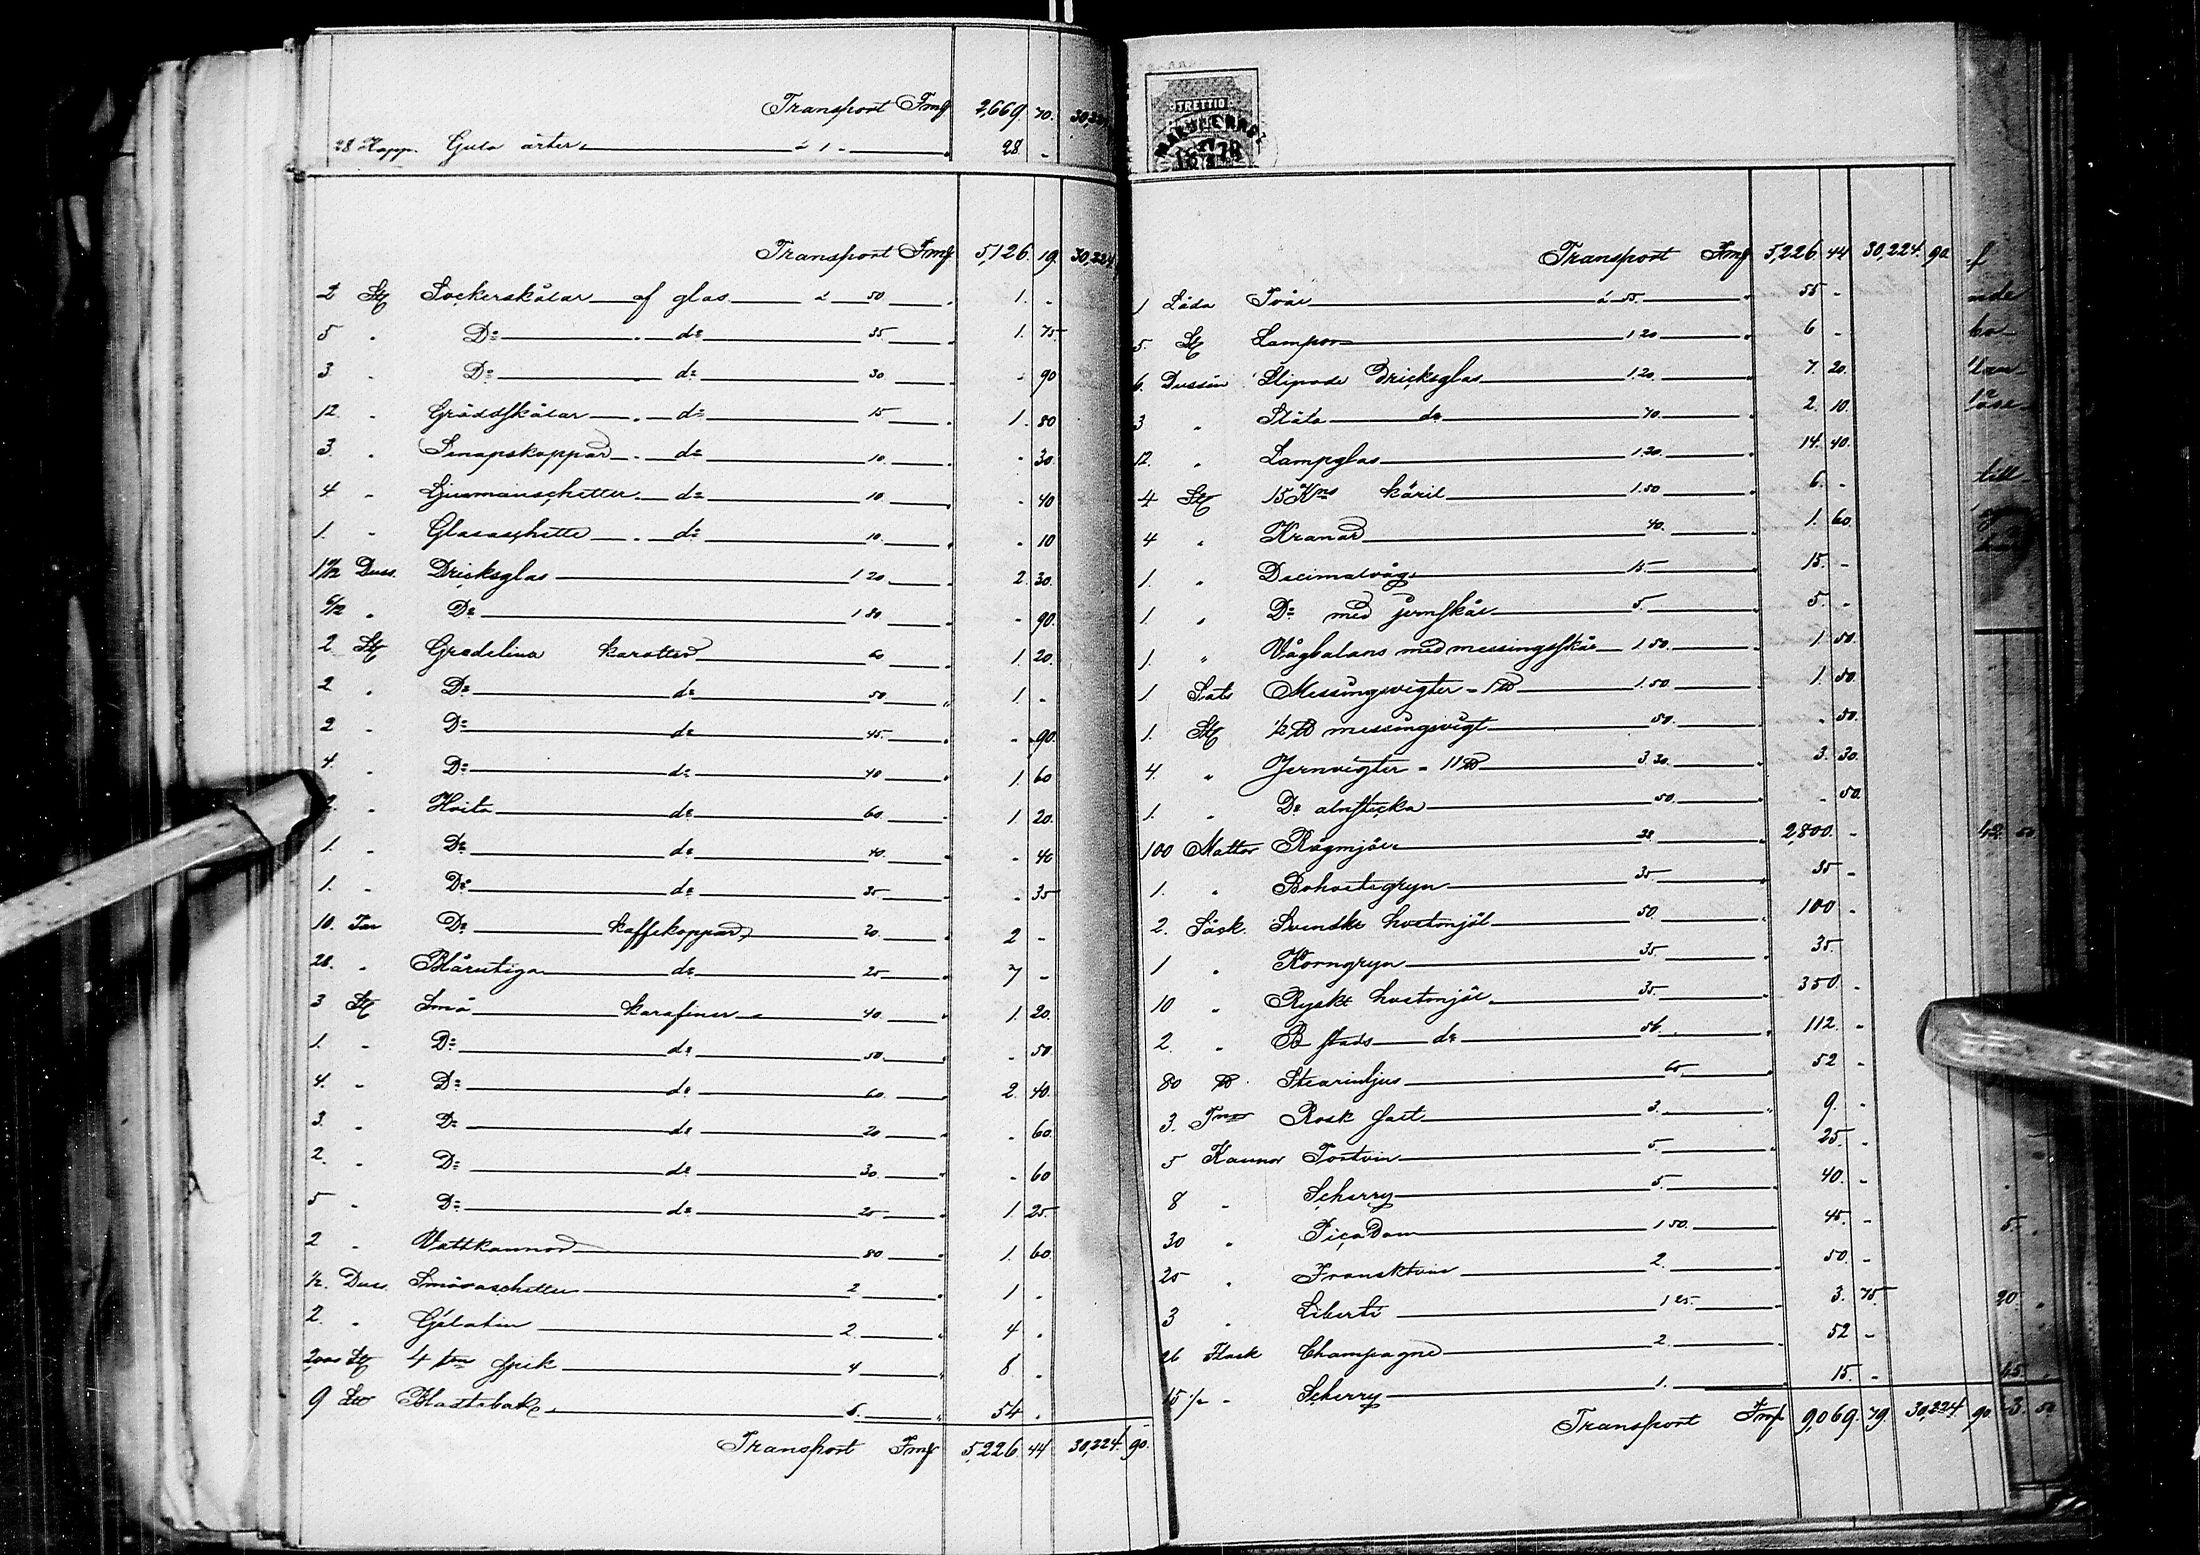 Transport Fmk 2,669. 70. 30,224
28 Kapp. Gula ärter à 1 - 28 -
Transport Fmk 5,126. 19. 30,224
2 St Sockerskålar af glas à 50 1. -
5 " Do " do 35 1. 75
3 " Do do 30 - 90
12. " Gräddskålar " do 15 1. 80
3. " Senapskoppar " do 10. - 30.
4 " Ljusmanschetter " do 10 - 40
1. " Glasaschette " do 10. - 10
1 11/12 Duss. Dricksglas 1 20 2. 30.
6/12 " Do 1 80 - 90.
2 St Gredelina karotter 60 1. 20.
2 " Do do 50 1 -
2 " Do do 45 - 90.
4. " Do do 40 1. 60
2. " Hvita do 60. 1 20.
1. " Do do 40. - 40
1. " Do do 35 - 35
10. Par Do kaffekoppar 20. 2 -
28. " Blårutiga do 25 7 -
3 St Små karafiner 40. 1. 20.
1. " Do do 50 - 50.
4. " Do do 60. 2. 40.
3. " Do do 20 - 60.
2. " Do do 30 - 60
5 " Do do 25 1. 25
2 " Vattkannor 80 1. 60
1/2 Duss. Småaschetter 2 1 -
2. " Gelatin 2. 4 -
2,000 St 4 tm spik 4 8 -
9 6. 54 -
Transport Fmk 5,226. 44 30,224. 90.
TRETTIO
Transport Fmk 5,226 44 30,224. 90
1 Låda Tvål à 55. 55 -
5. St Lampor 1 20 6 -
6. Dussin Slipade Dricksglas 1.20. 7. 20.
3 " Släta do 70. 2. 10.
12. " Lampglas 1.20. 14. 40.
4 St 15 Kns käril 1.50 6. -
4 " Kranar 40. 1. 60.
1. " Decimalvåg 15 15. -
1 " Do med jernskål 5. 5. -
1. " Vågbalans med messingsskål 1 50. 1 50.
1 Sats Messingsvigter = 1 ℔ 1.50. 1. 50.
1. St 1/2 ℔ messingsvigt 50. - 50.
4. " Jernvigter = 11 ℔ 3.30. 3. 30.
1. " Do alnsticka 50. - 50.
100 Mattor Rågmjöl 28 2,800. -
1. " Bohvetegryn 35 35 -
2. Säck. Svenskt hvetmjöl 50. 100 -
1 " Korngryn 35. 35. -
10 " Ryskt hvetmjöl 35. 350. -
2. " B stads do 56. 112. -
80 ℔ Stearinljus 65 52 -
3. Tnor Rosk salt 3. 9. -
5 Kannor Portvin 5. 25. -
8 " Scherry 5. 40. -
30 " PicaDom 1 50. 45. -
25 " Fransktvin 2. 50. -
3 " Liberti 1 25. 3. 75.
26 Flask Champagne 2. 52 -
15 1/2 " Scherry 1. 15. -
Transport Fmk 9,069. 79. 30,224. 90.